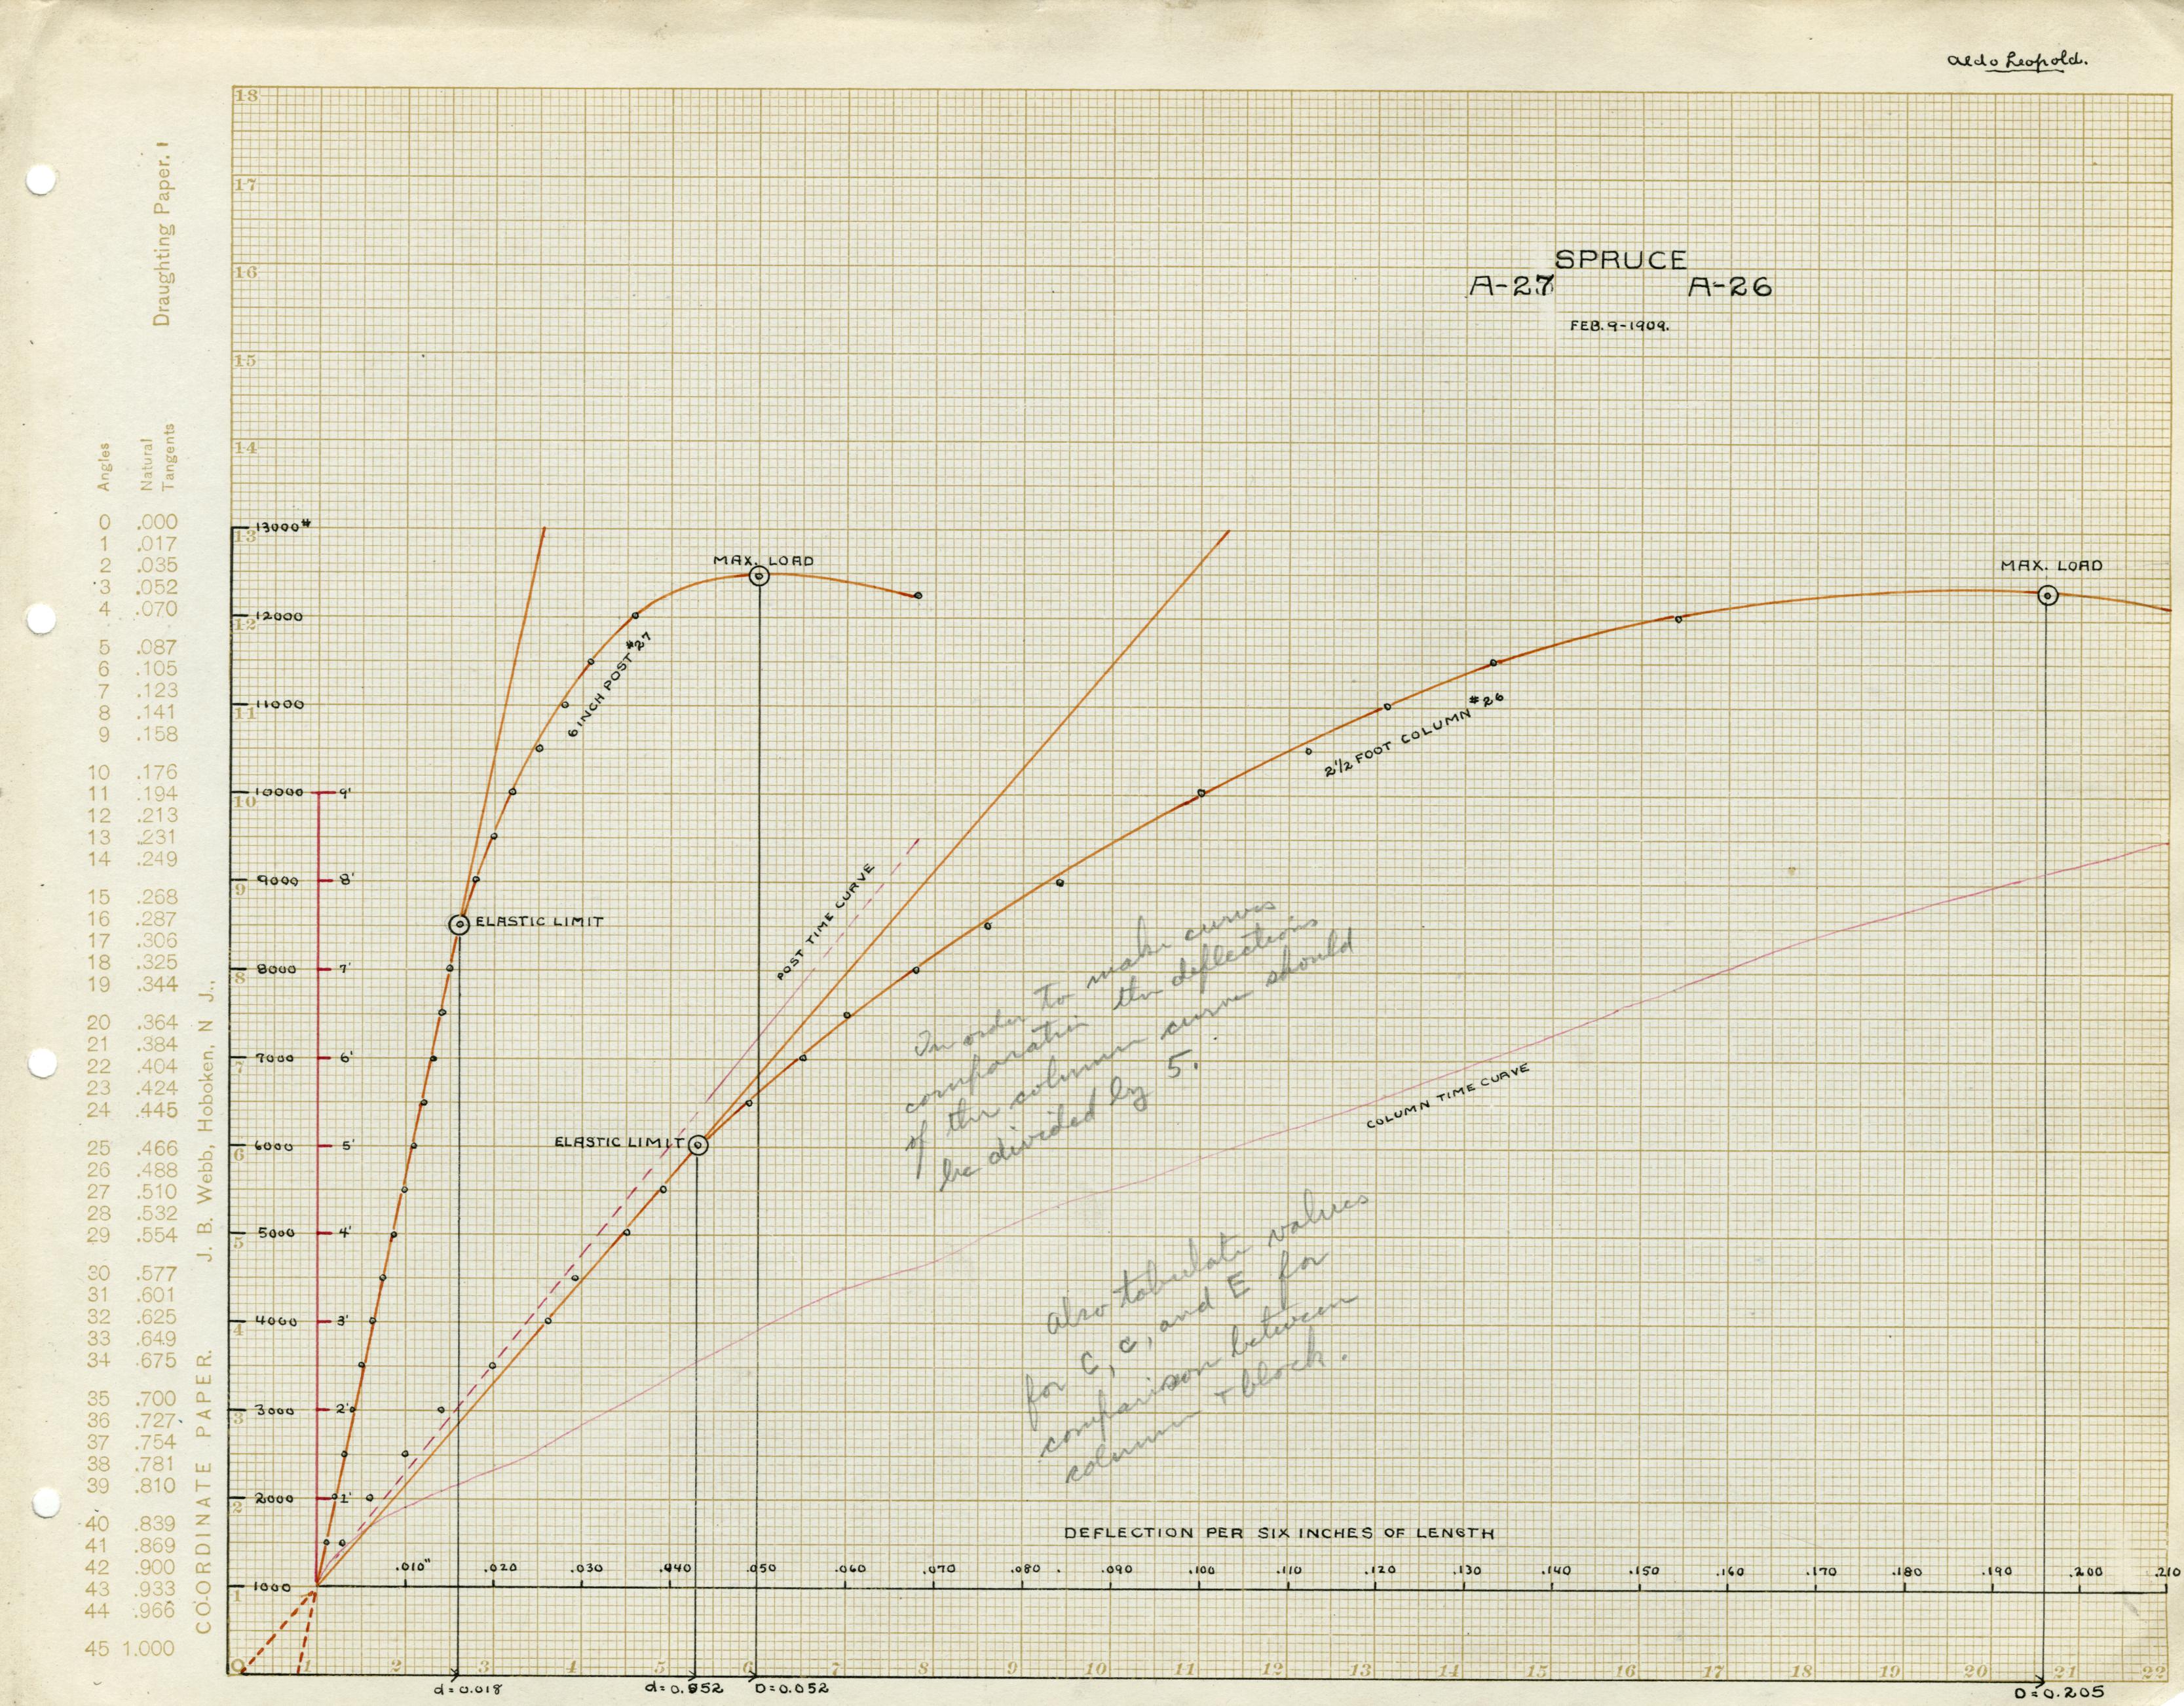 aldo Leopold.
Draughting Paper.
SPRUCE
A-27 A-26
FEB. 9-1909.
Angles Natural Tangents
0 .000
1 .017
2 .035
3 .052
4 .070
5 .087
6 .105
7 .123
8 .141
9 .158
10 .176
11 .194
12 .213
13 .231
14 .249
15 .268
16 .287
17 .306
18 .325
19 .344
20 .364
21 .384
22 .404
23 .424
24 .445
25 .466
26 .488
27 .510
28 .532
29 .554
30 .577
31 .601
32 .625
33 .649
34 .675
35 .700
36 .727
37 .754
38 .781
39 .810
40 .839
41 .869
42 .900
43 .933
44 .966
45 1.000
COORDINATE PAPER. J. B. Webb, Hoboken, N J.,
18
17
16
15
14
13
12
11
10
9
8
7
6
5
4
3
2
1
13000#
12000
11000
10000
9000
8000
7000
6000
5000
4000
3000
2000
1000
9'
8'
7'
6'
5'
4'
3'
2'
1'
MAX. LOAD
6 INCH POST #27
ELASTIC LIMIT
MAX. LOAD
2 1/2 FOOT COLUMN #26
POST TIME CURVE
ELASTIC LIMIT
COLUMN TIME CURVE
In order to make curves
comparative the deflections
of the column curve should
be divided by 5.
also tabulate values
for C, c, and E for
comparison between
column + block.
DEFLECTION PER SIX INCHES OF LENGTH
.010" .020 .030 .040 .050 .060 .070 .080 .090 .100 .110 .120 .130 .140 .150 .160 .170 .180 .190 .200 .210
0 1 2 3 4 5 6 7 8 9 10 11 12 13 14 15 16 17 18 19 20 21 22
d=0.018 d=0.052 D=0.052 D=0.205